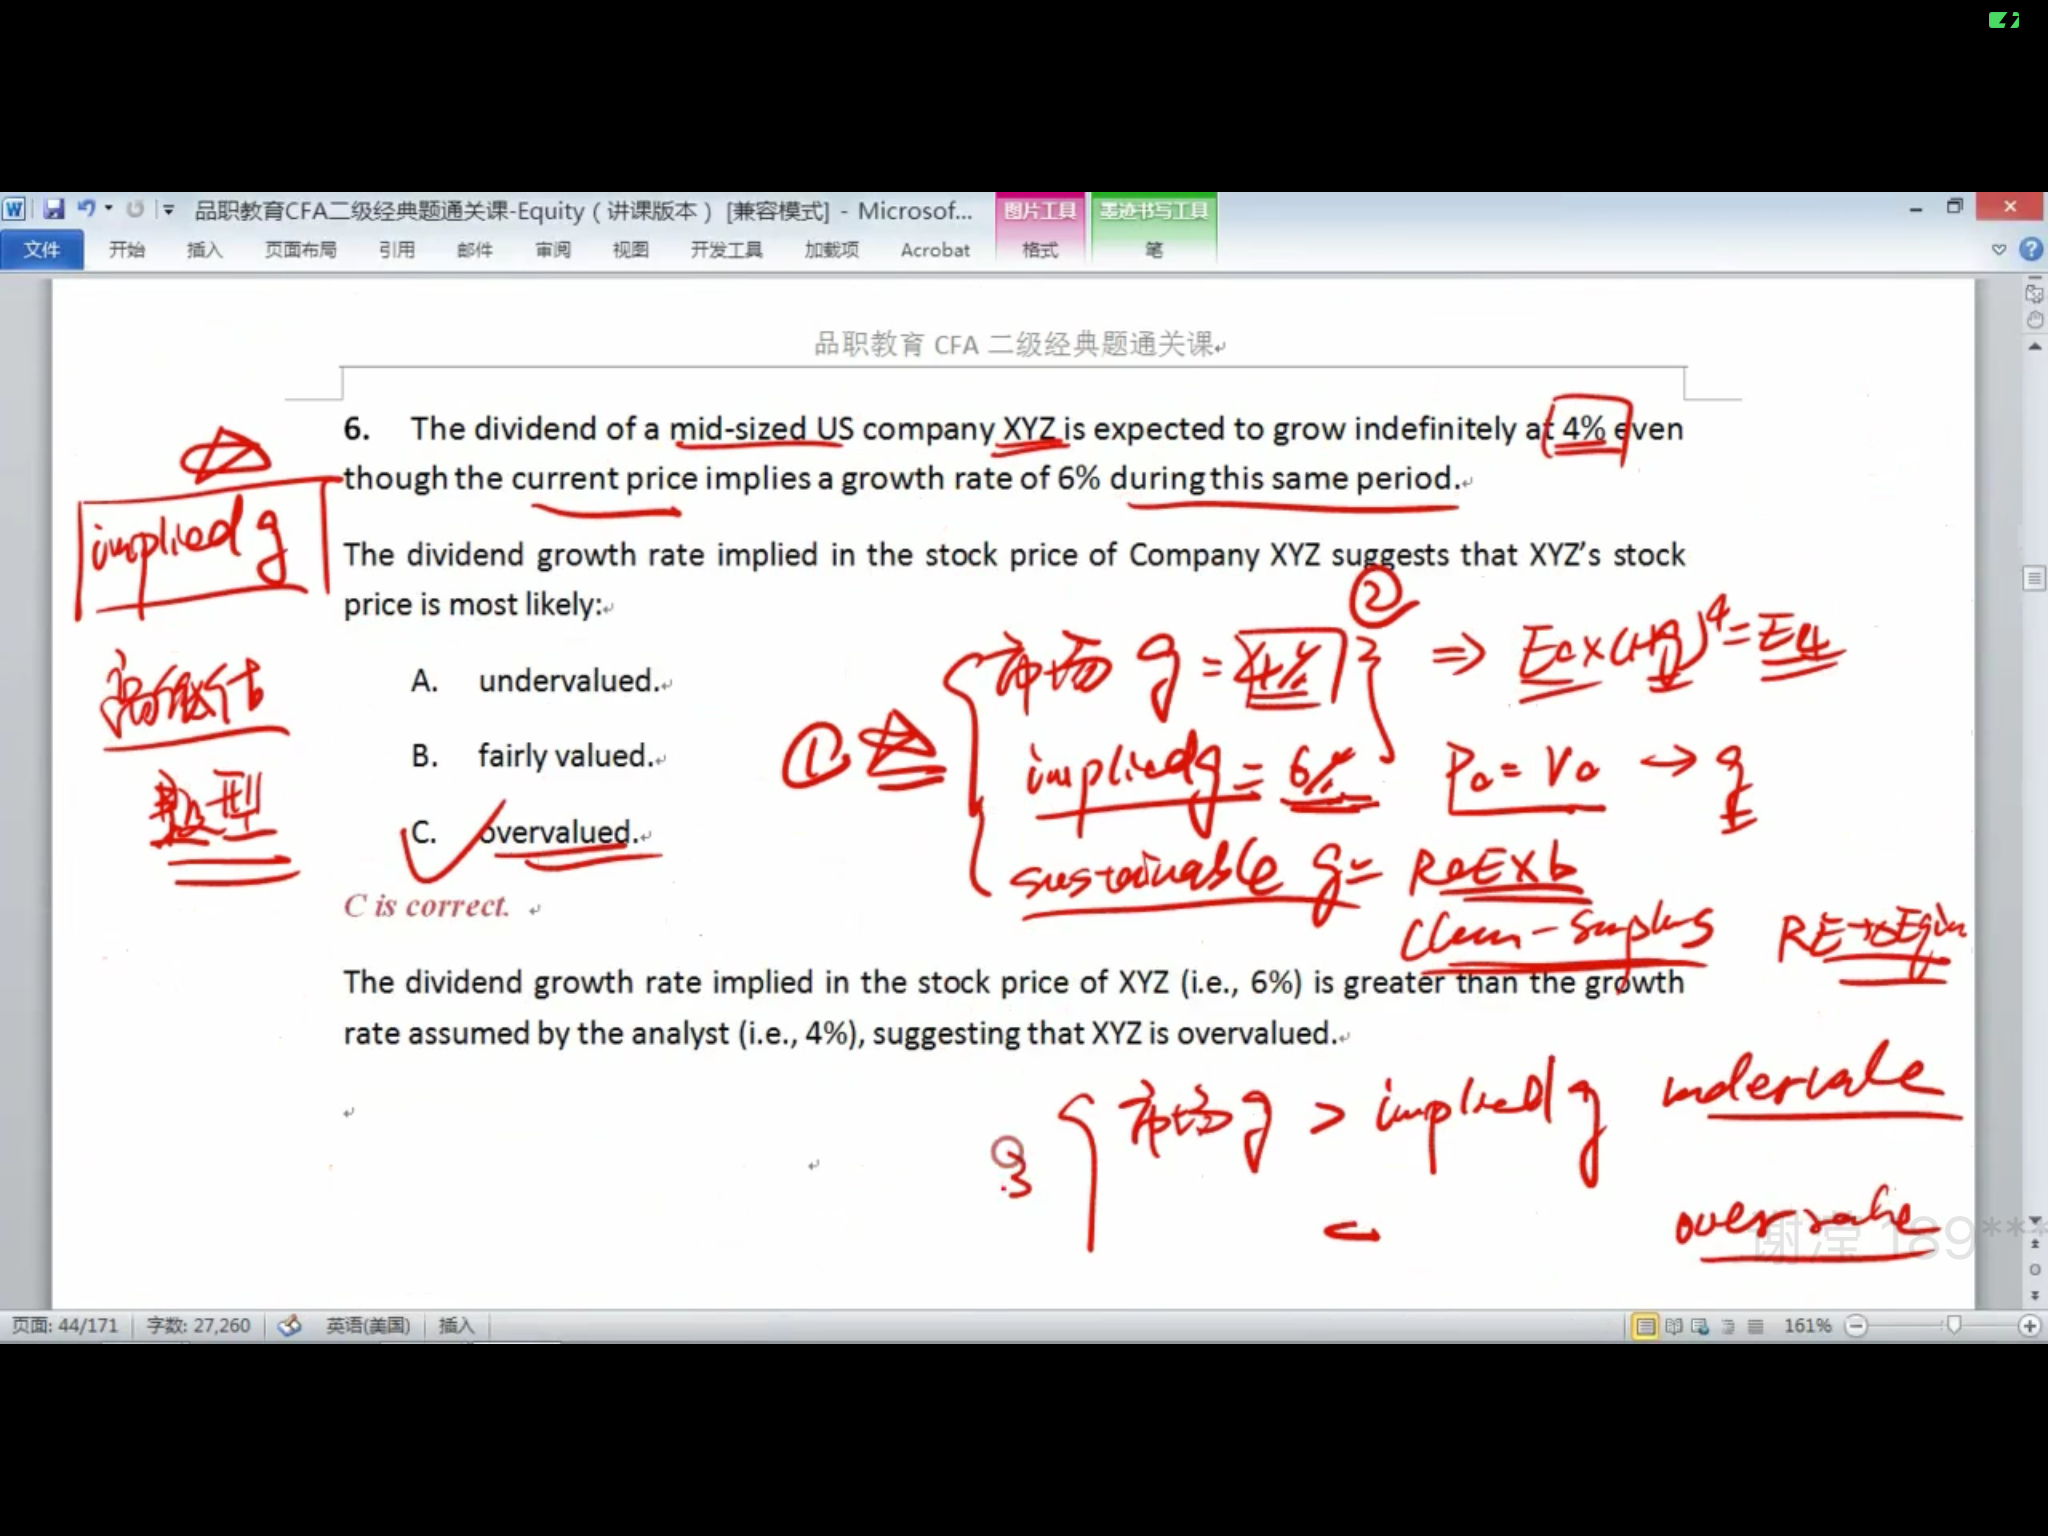 品职教育CFA二级经典题通关课-Equity（讲课版本） [兼容模式] - Microsof...
图片工具
墨迹书写工具
文件 开始 插入 页面布局 引用 邮件 审阅 视图 开发工具 加载项 Acrobat 格式 笔
品职教育 CFA 二级经典题通关课
6. The dividend of a mid-sized US company XYZ is expected to grow indefinitely at 4% even
though the current price implies a growth rate of 6% during this same period.
implied g
The dividend growth rate implied in the stock price of Company XYZ suggests that XYZ's stock
price is most likely:
②
高低估
题型
A. undervalued.
B. fairly valued.
C. overvalued.
① 市场 g = 4% ⇒ E0×(1+g)^4 = E4
implied g = 6% P0 = V0 → g
sustainable g = ROE×b
Clean-surplus RE→
C is correct.
The dividend growth rate implied in the stock price of XYZ (i.e., 6%) is greater than the growth
rate assumed by the analyst (i.e., 4%), suggesting that XYZ is overvalued.
3 市场 g > implied g undervalue
< overvalue
谢滢 189***
页面: 44/171 字数: 27,260 英语(美国) 插入 161%